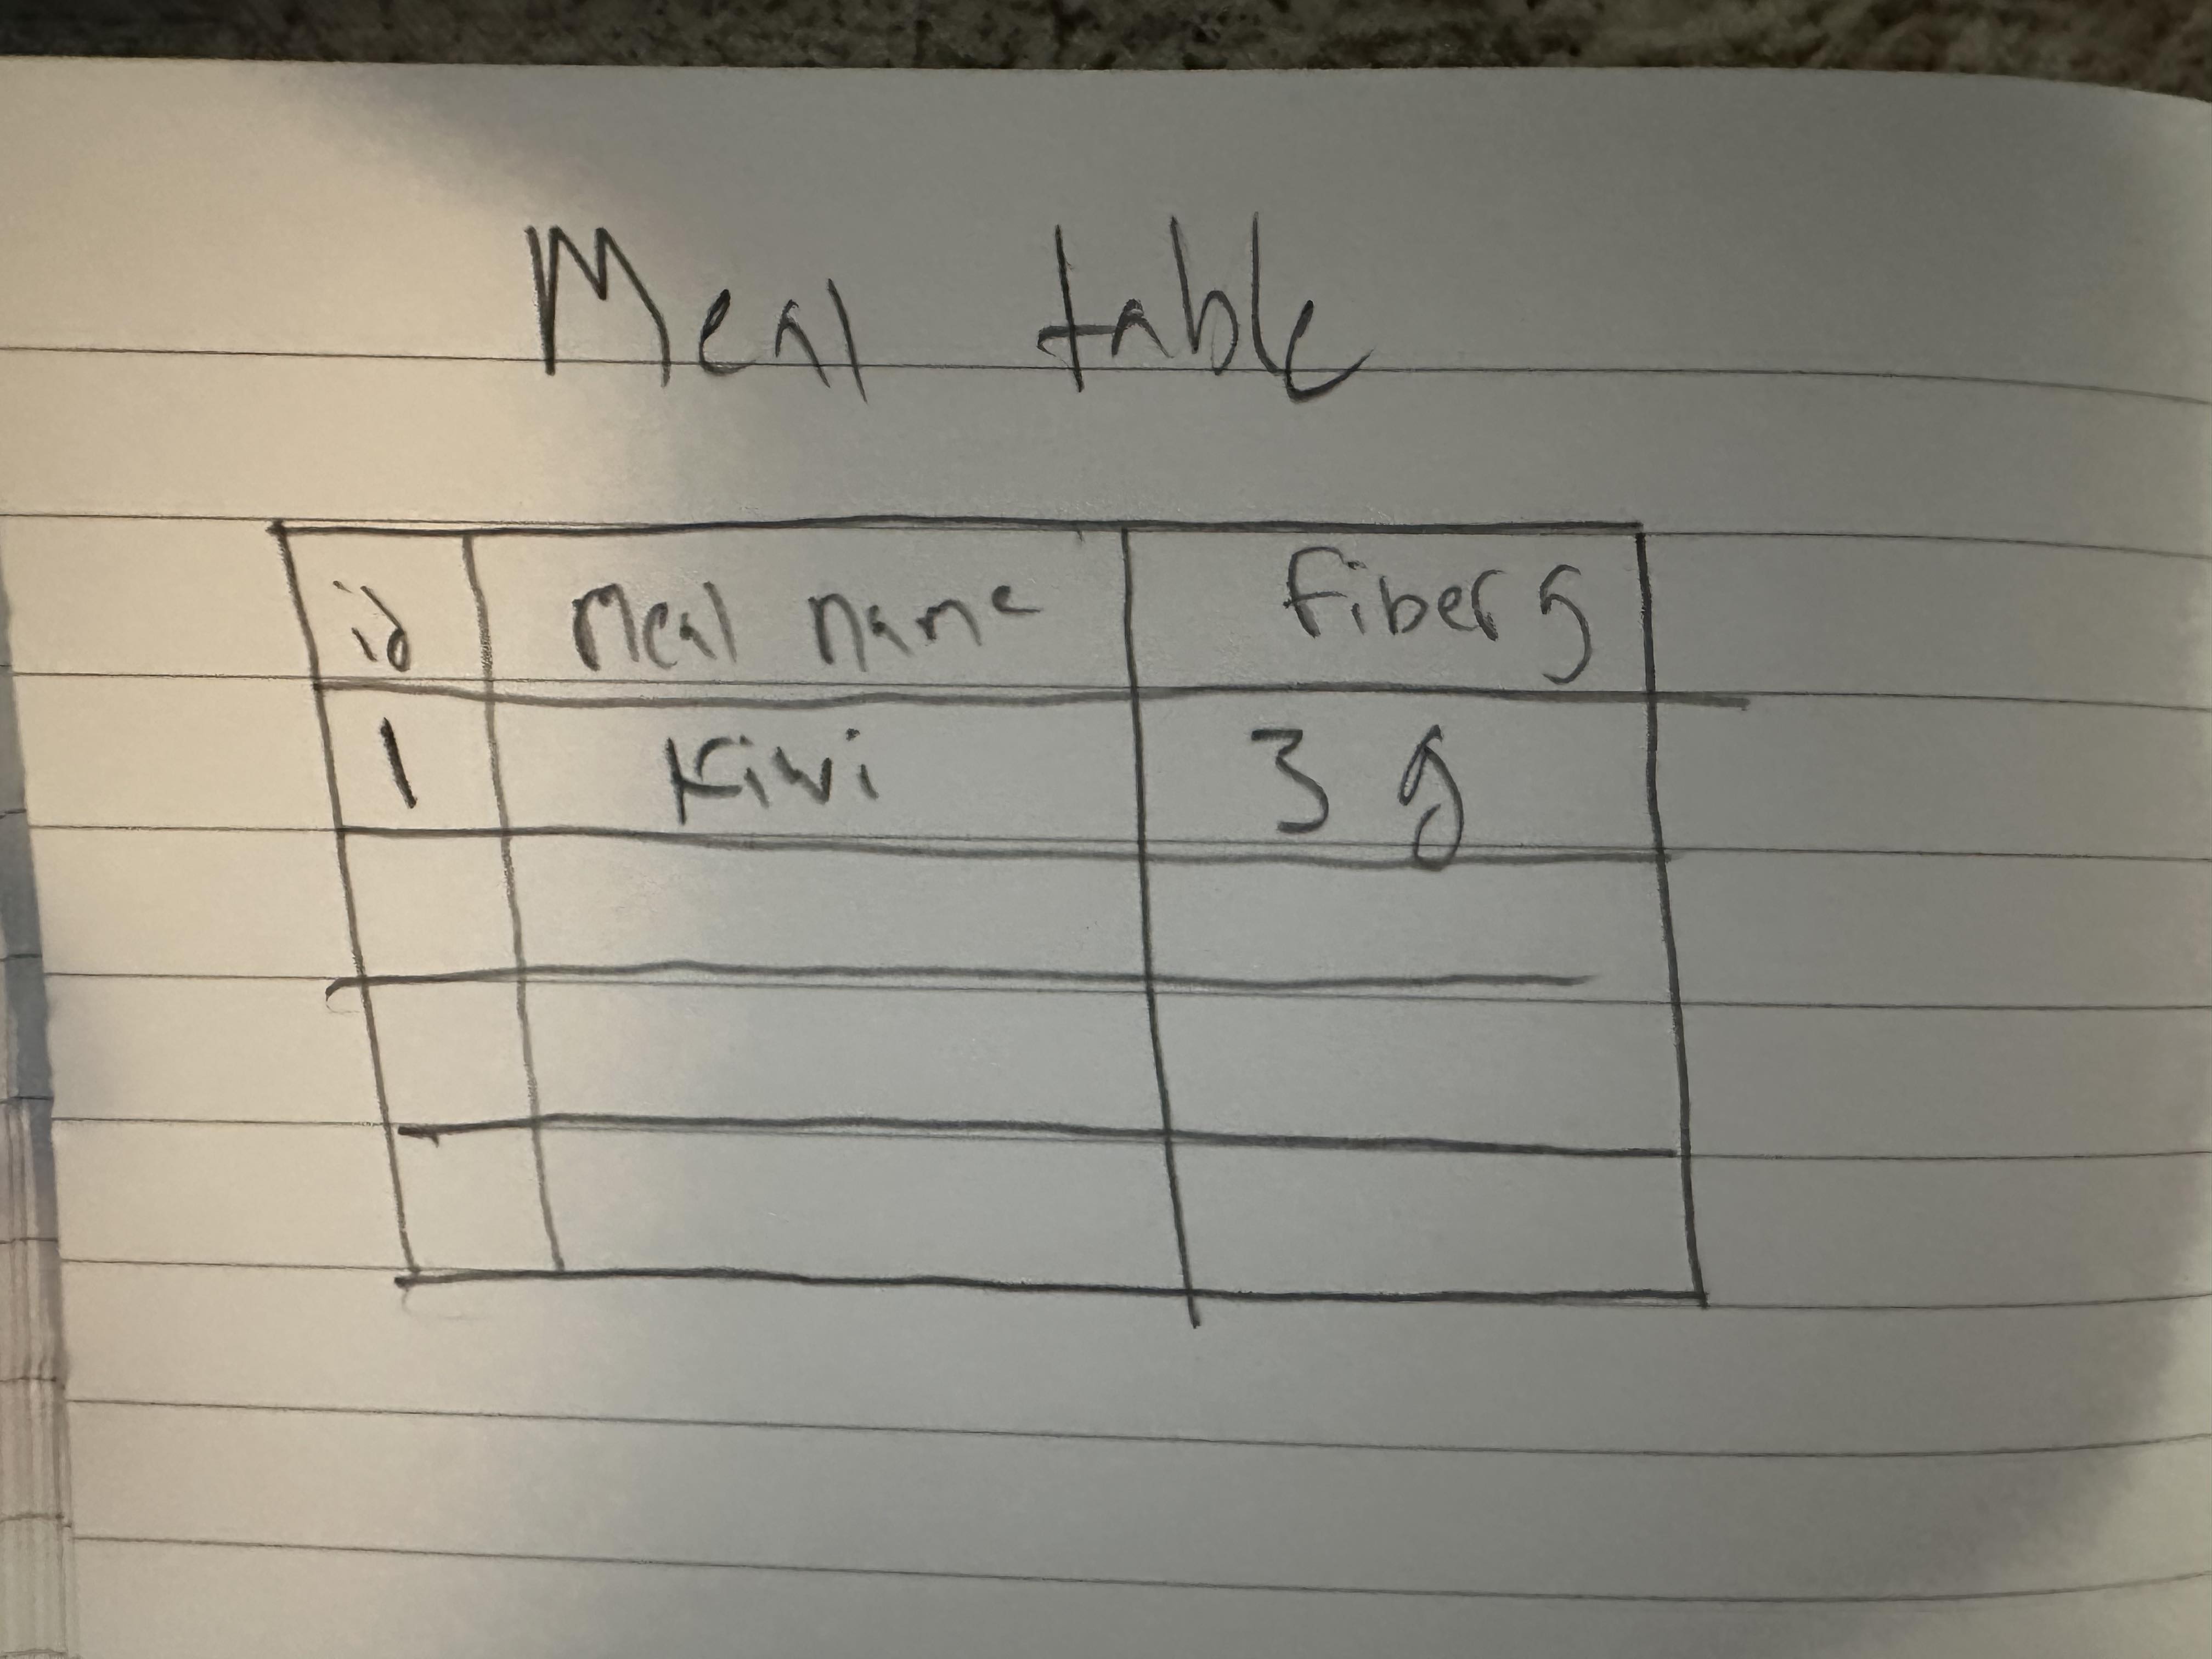 Meal table
id Meal name fiber g
1 Kiwi 3 g